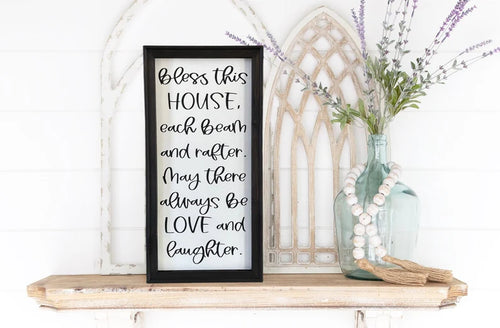 Bless this
HOUSE,
each Beam
and rafter.
May there
always Be
LOVE and
laughter.